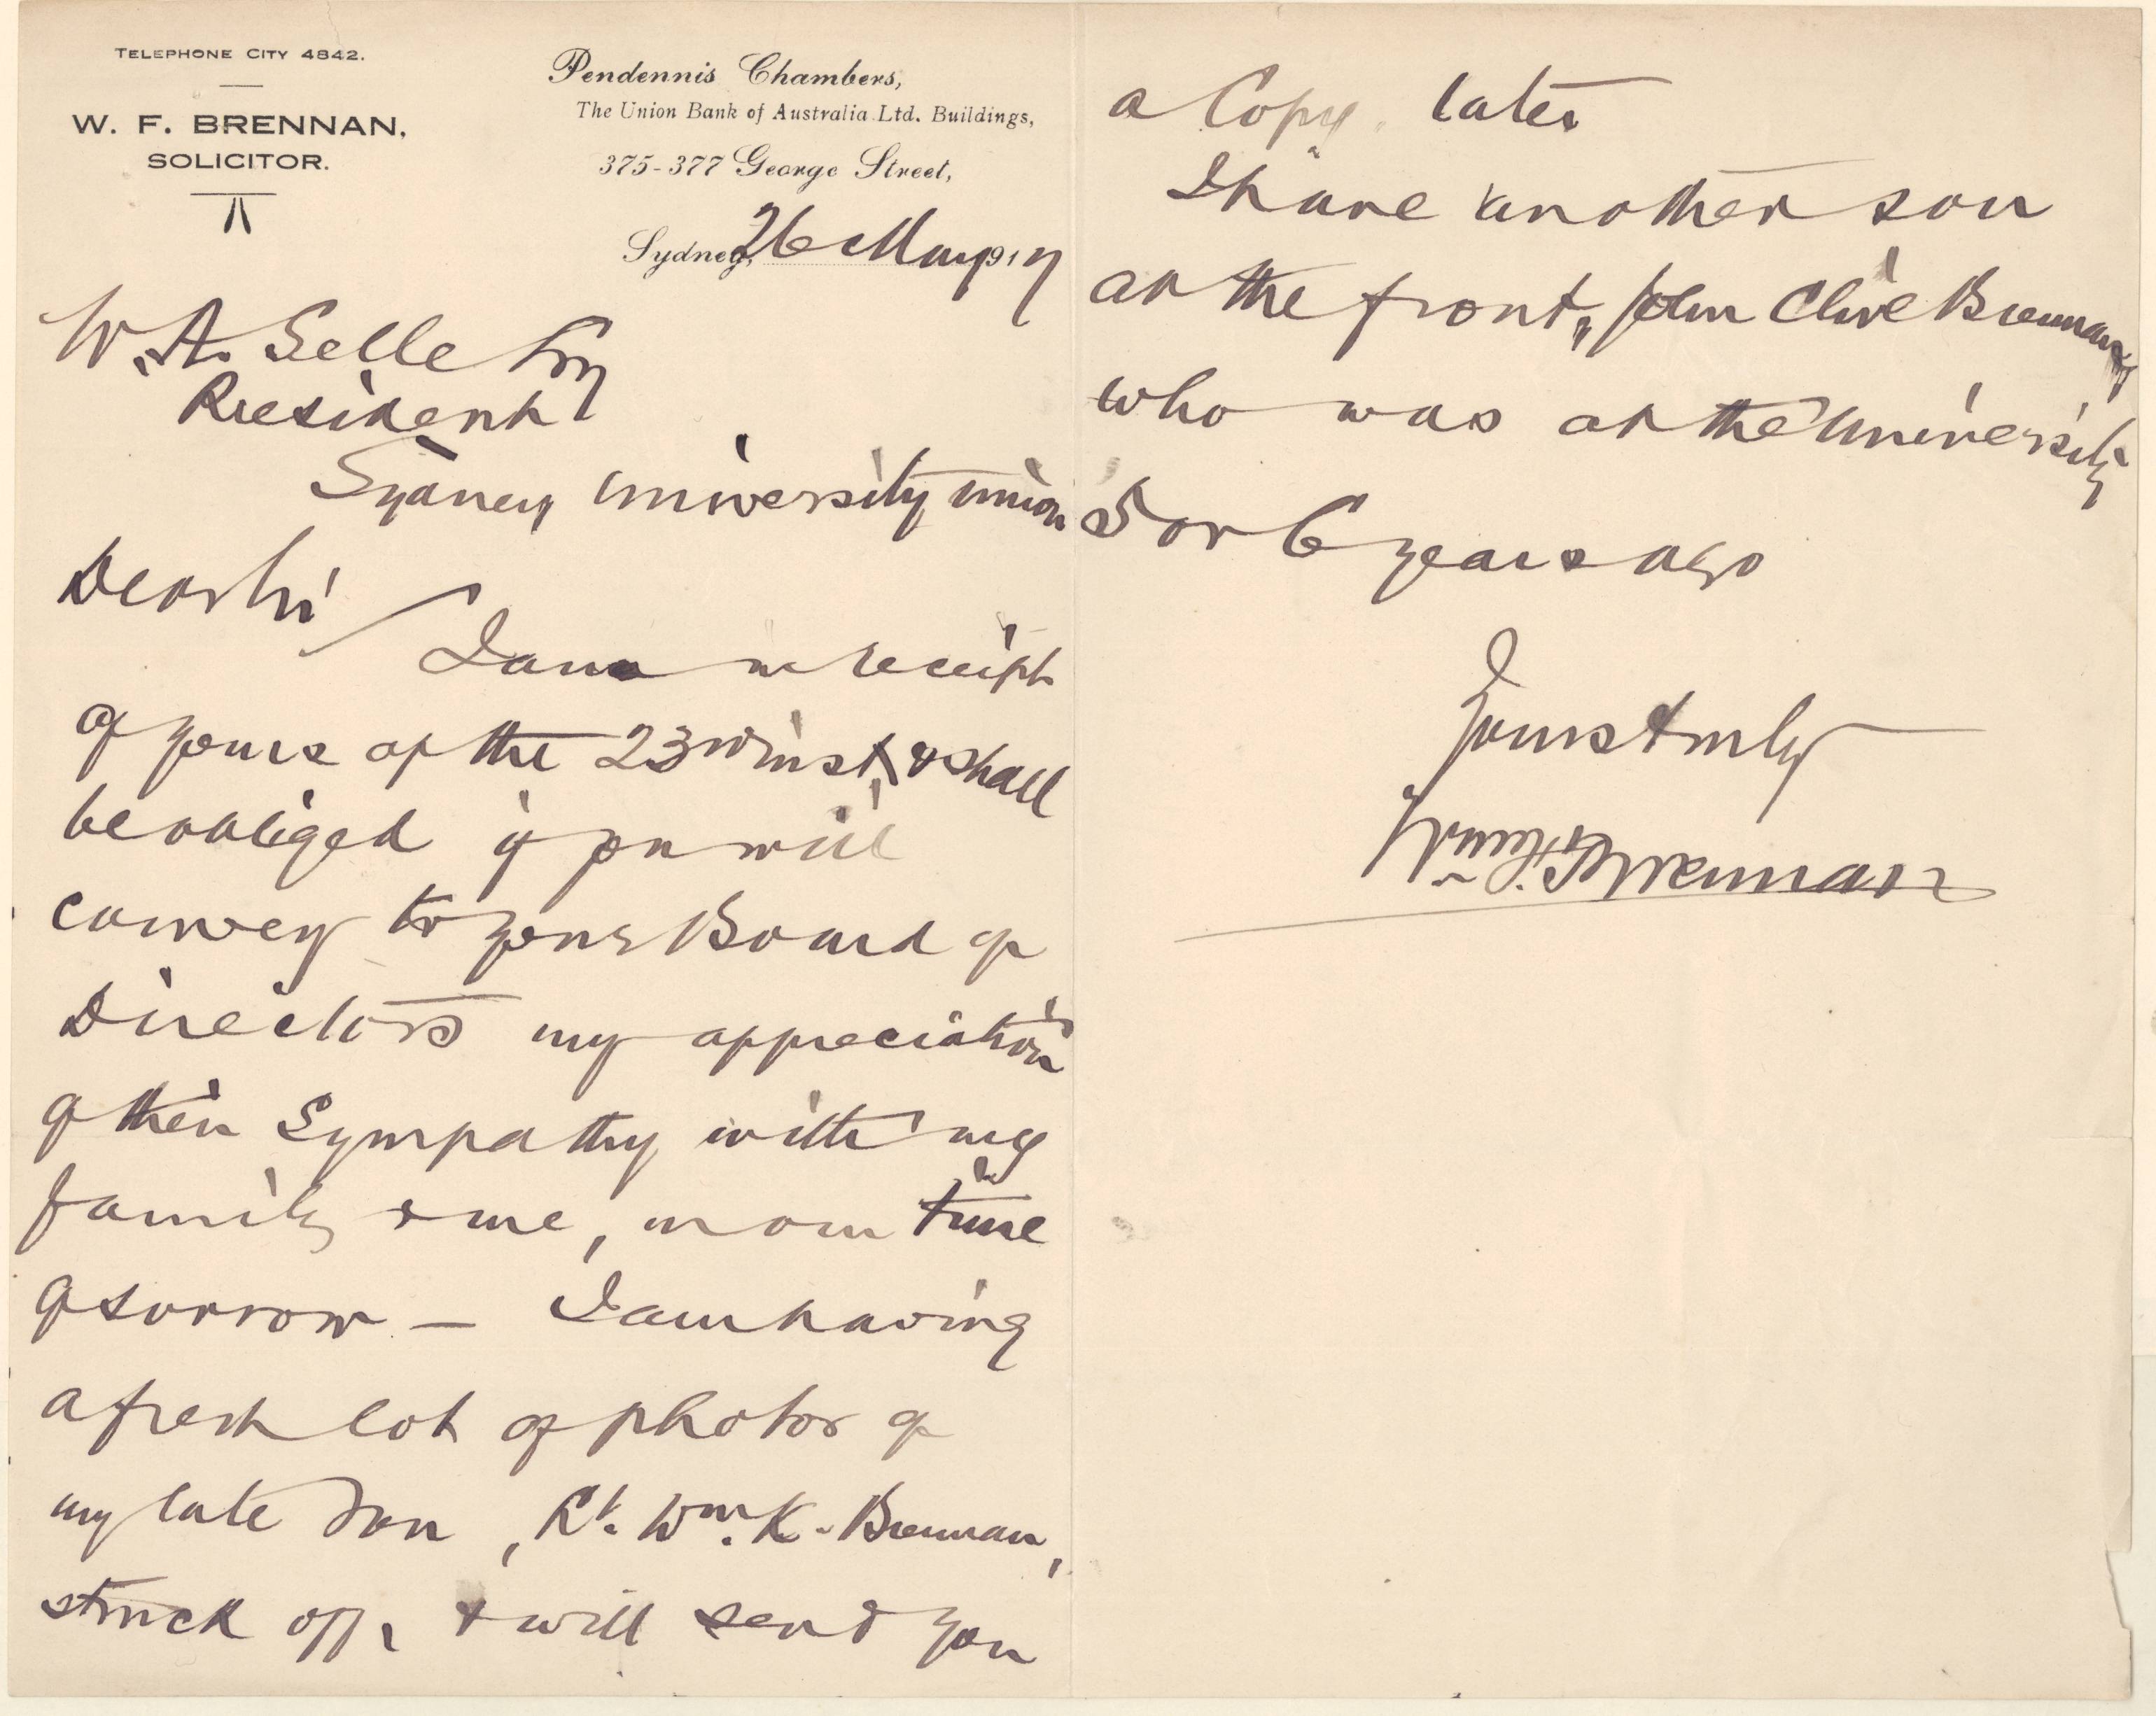 TELEPHONE CITY 4842.
W. F. BRENNAN,
SOLICITOR.
Pendennis Chambers,
The Union Bank of Australia Ltd. Buildings,
375-377 George Street,
Sydney, 26 May 1917
W. A. Selle Esq
President
Sydney University Union
Dear Sir/
I am in receipt
of yours of the 23rd inst, & shall
be obliged if you will
convey to your Board of
Directors my appreciation
of their Sympathy with my
family & me, in our time
of sorrow — I am having
a fresh lot of photos of
my late son, Lt. Wm. K. Brennan,
struck off, & will send you
a Copy later
I have another son
at the front, John Clive Brennan,
who was at the University
5 or 6 years ago
Yours truly
Wm. F. Brennan